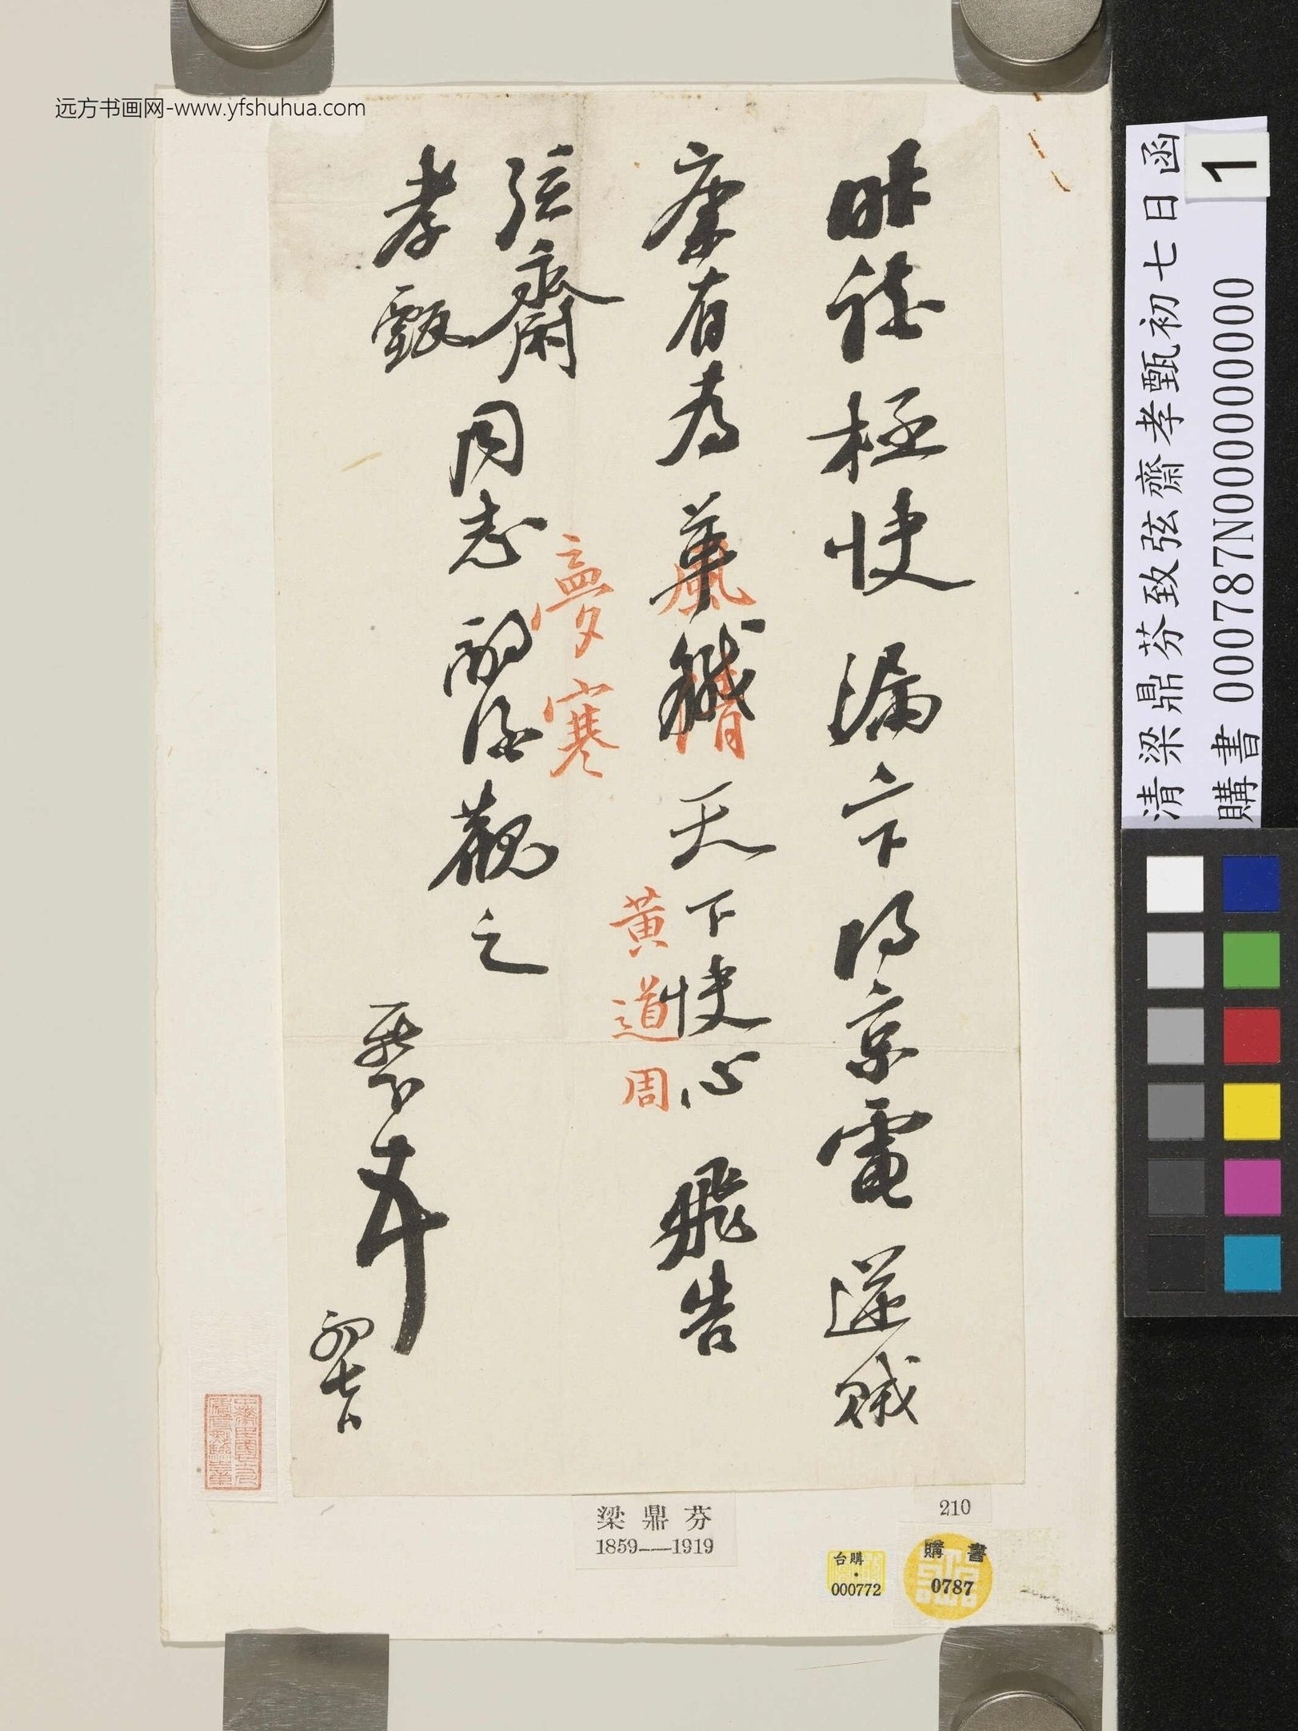 远方书画网-www.yfshuhua.com
昨談極快漏下得京電逆賊
康有為革職天下快心飛告
弦齋
孝甄
同志
觀之
鼎芬
初七日
風情
夢寒
黃道周
清梁鼎芬致弦齋孝甄初七日函
購書 000787N000000000
1
梁鼎芬
1859—1919
210
台購
000772
購書
0787